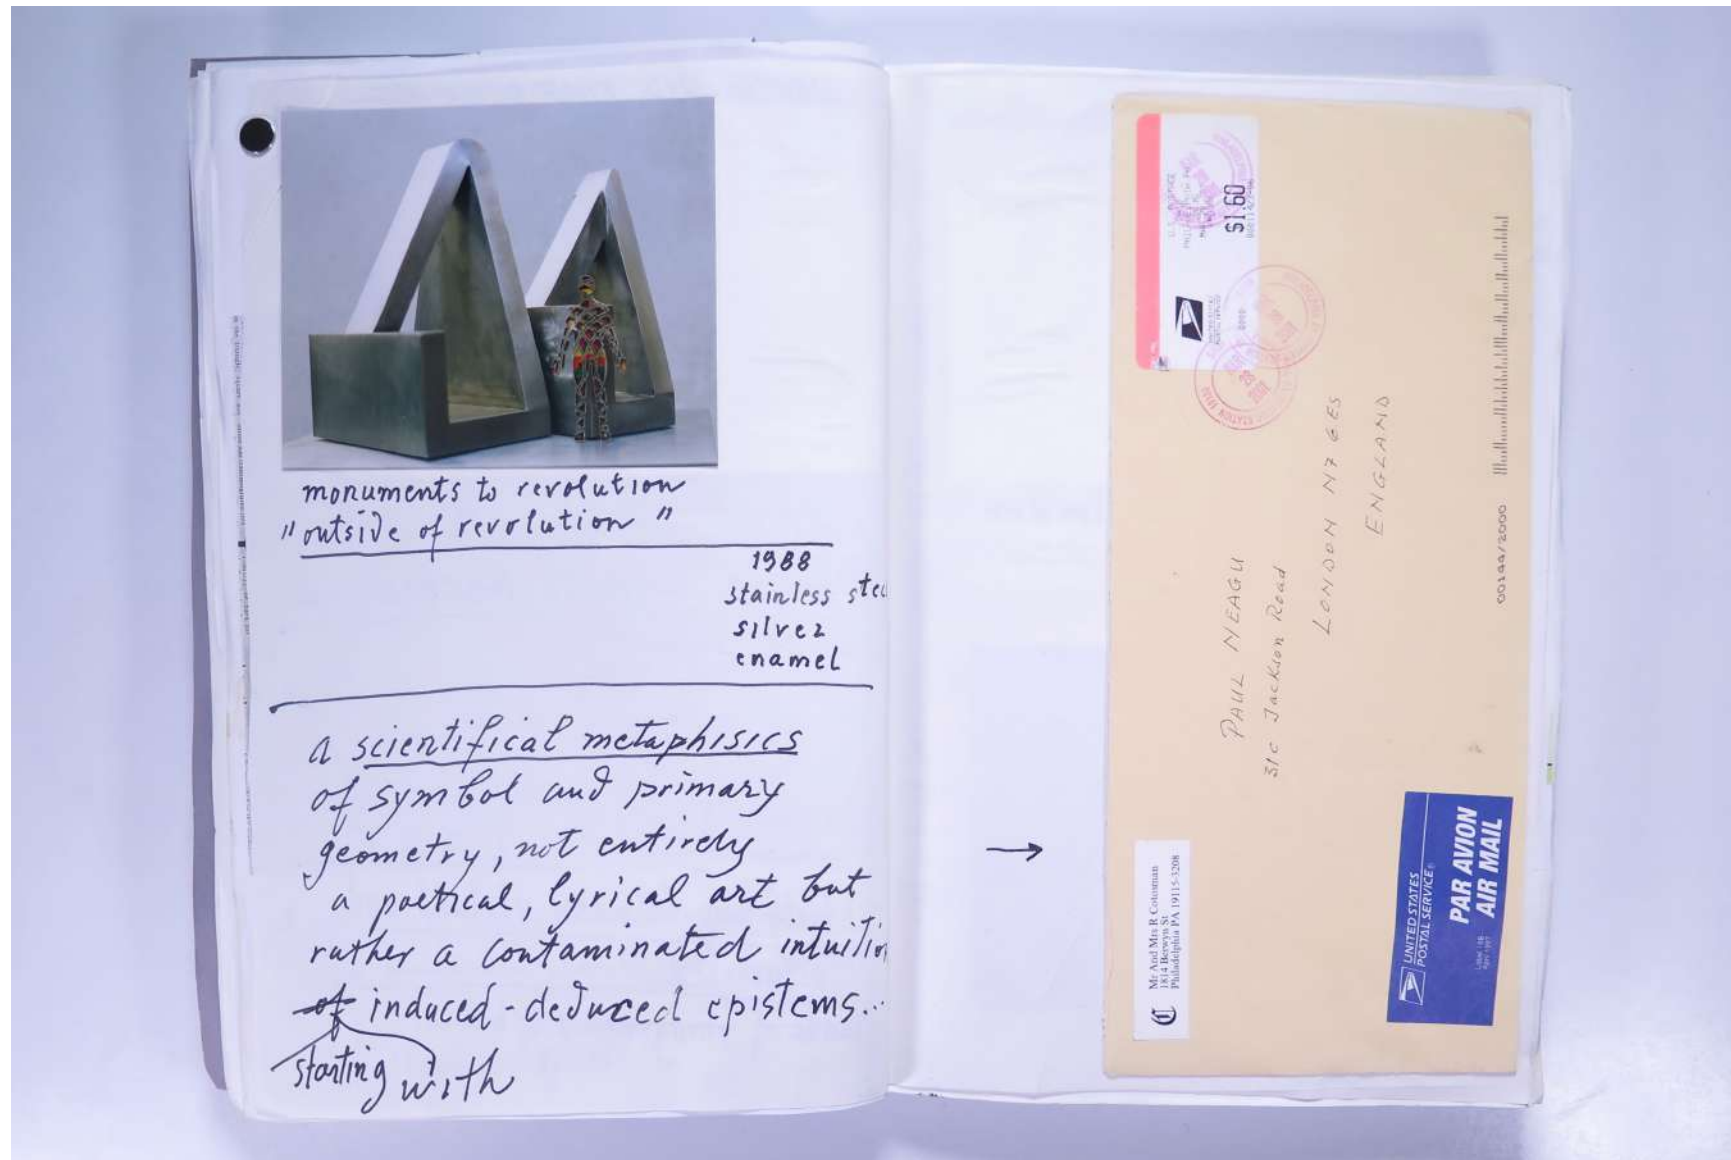 monuments to revolution
"outside of revolution"
1988
stainless stee
silver
enamel
a scientifical metaphisics
of symbol and primary
geometry, not entirely
a poetical, lyrical art but
rather a contaminated intuition
of induced-deduced epistems...
starting with
→
$1.60
UNITED STATES
POSTAL SERVICE
PAUL NEAGU
31c Jackson Road
LONDON N7 6ES
ENGLAND
Mr And Mrs R Cotosman
1814 Berwyn St
Philadelphia PA 19115-3208
C
UNITED STATES
POSTAL SERVICE®
PAR AVION
AIR MAIL